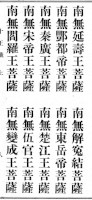 南無延壽王菩薩 南無解冤結菩薩
南無酆都帝菩薩 南無東岳帝菩薩
南無秦廣王菩薩 南無楚江王菩薩
南無宋帝王菩薩 南無伍官王菩薩
南無閻羅王菩薩 南無變成王菩薩